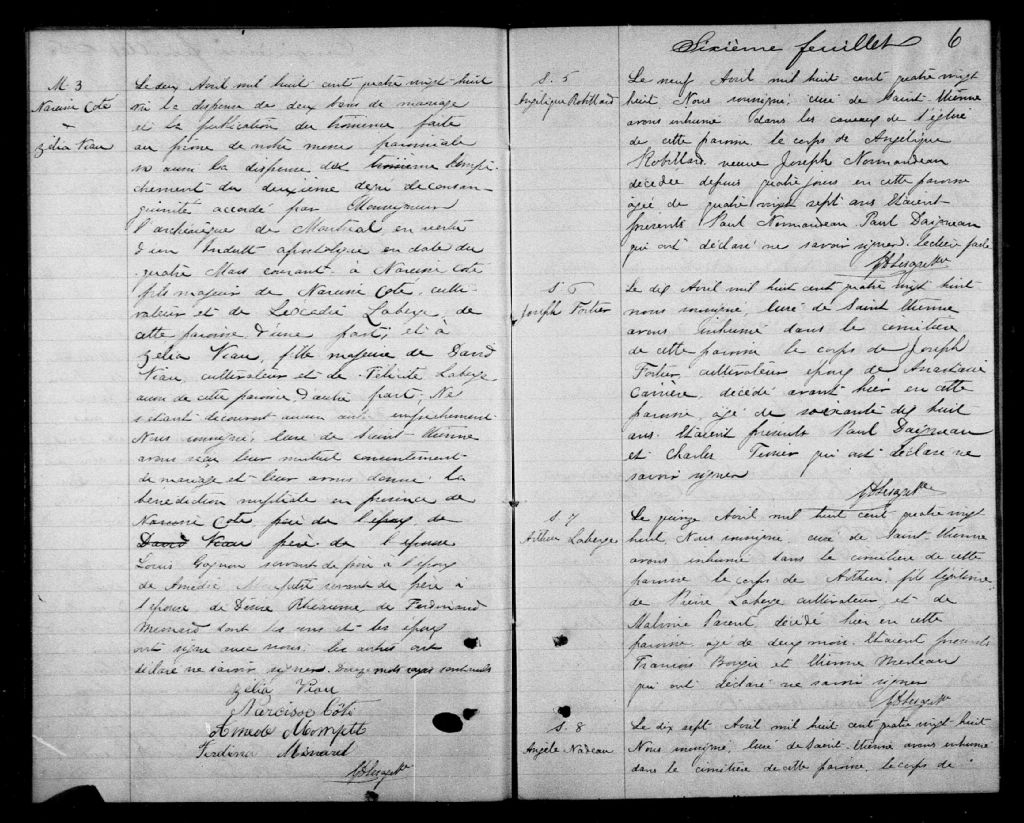 M. 3
Narcisse Coté
&
Zélia Viau
Le deux Avril mil huit cent quatre vingt huit
Vu la dispense de deux bans de mariage
et la publication du troisieme faite
au prone de notre messe paroissiale
vu aussi la dispense du troisième empê-
chement du deuxième degré de consan-
guinité accordé par Monseigneur
l'archevêque de Montréal en vertu
d'un Indult apostolique en date du
quatre Mars courant, à Narcisse Coté
fils majeur de Narcisse Coté, culti-
vateur et de Léocadie Laberge, de
cette paroisse d'une part; et à
Zélia Viau, fille majeure de David
Viau, cultivateur et de Félicité Laberge
aussi de cette paroisse d'autre part. Ne
s'étant découvert aucun autre empêchement
Nous soussigné, Curé de Saint-Etienne
avons reçu leur mutuel consentement
de mariage et leur avons donné la
bénédiction nuptiale en présence de
Narcisse Coté, père de l'époux, de
David Viau père de l'épouse
Louis Gagnon servant de père à l'époux
de Amédé servant de père à
l'épouse, de Désiré Rhéaume, de Ferdinand
Menard dont les uns et les époux
ont signé avec nous; les autres ont
déclaré ne savoir signer. mots rayés sont nuls
Zélia Viau
Narcisse Côté
Amede
Ferdina Ménard
Sixième feuillet 6
S. 5
Angélique Robillard
Le neuf Avril mil huit cent quatre vingt
huit, Nous soussigné, curé de Saint-Etienne
avons inhumé dans les caveaux de l'église
de cette paroisse le corps de Angélique
Robillard veuve Joseph Normandeau
décédée depuis quatre jours en cette paroisse
agée de quatre vingt sept ans Etaient
présents Paul Normandeau Paul Daigneau
qui ont déclaré ne savoir signer. lecture faite
S. 6
Joseph Fortier
Le dix Avril mil huit cent quatre vingt huit
nous soussigné, Curé de Saint Etienne
avons inhumé dans le cimetière
de cette paroisse le corps de Joseph
Fortier, cultivateur époux de Anastasie
Carrière, décédé avant hier en cette
paroisse, agé de soixante dix huit
ans. Etaient présents Paul Daigneau
et Charles Tessier qui ont déclaré ne
savoir signer
S. 7
Arthur Laberge
Le quinze Avril mil huit cent quatre vingt
huit Nous soussigné, curé de Saint-Etienne
avons inhumé dans le cimetière de cette
paroisse le corps de Arthur, fils légitime
de Pierre Laberge cultivateur et de
Malvina Parent décédé hier en cette
paroisse agé de deux mois. Etaient présents
François Bougie et Etienne
qui ont déclaré ne savoir signer
S. 8
Angèle Nadeau
Le dix sept Avril mil huit cent quatre vingt huit
Nous soussigné, Curé de Saint-Etienne avons inhumé
dans le cimetière de cette paroisse, le corps de